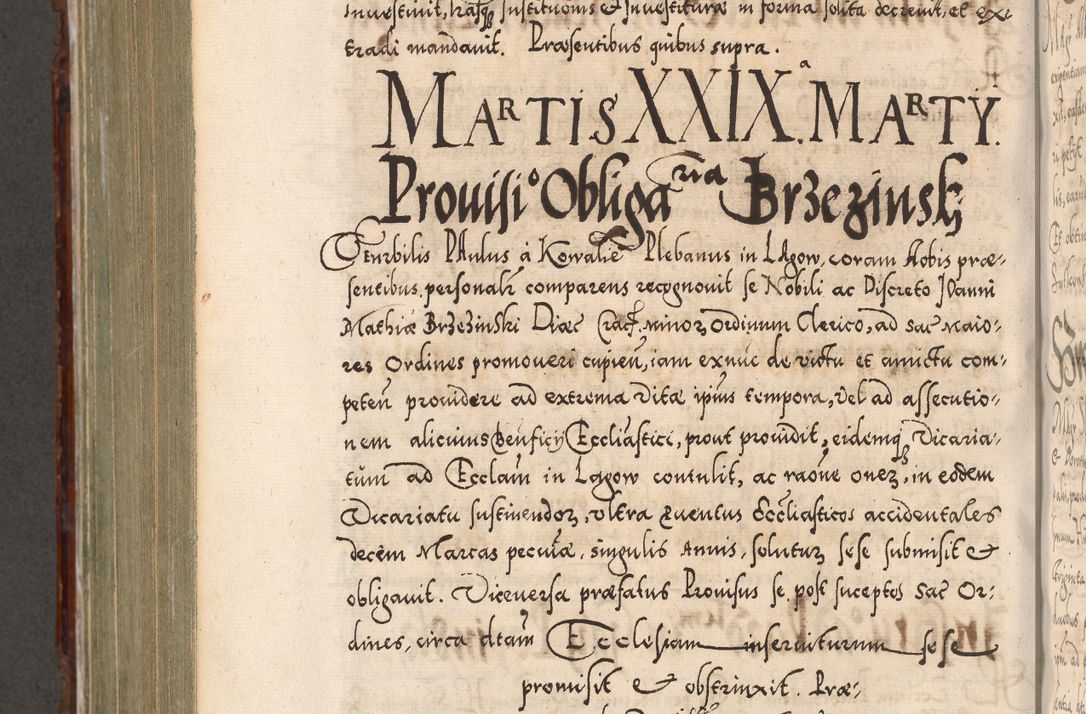 Inuestiuit, lrasqz Institutionis et Inuestiturae in forma solita decreuit, et ex-
tradi mandauit. Praesentibus quibus supra.
MARTIS XXIX.a MARTY.
Prouisio Obligaria Brzezinskj
Venrbilis PAulus à Kowalie Plebanus in LAgow, coram Nobis prae-
sentibus personalr comparens recognouit se Nobili ac Discreto JOanni
Mathiae Brzezinski Diaec Crac. minorz ordinum Clerico, ad Sac Maio-
res Ordines promoueri cupien, iam exnuc de victu et amictu com-
peten prouidere ad extrema vitae ipius tempora, vel ad assecutio-
nem alicuius Beuficij Eccliastici, prout prouidit, eidemqz Vicaria-
tum ad Ecclam in Lagow contulit, ac raoue onez, in eodem
Vicariatu sustinendoz, vltra Quentus Eccliasticos accidentales
decem Marcas pecuiae, singulis Annis, solutuz sese submisit et
obligauit. Viceuersa praefatus Prouisus se post suceptos Sac Or-
dines, circa dtam Ecclesiam inseruiturum sese
promisit et obstrinxit. Prae-